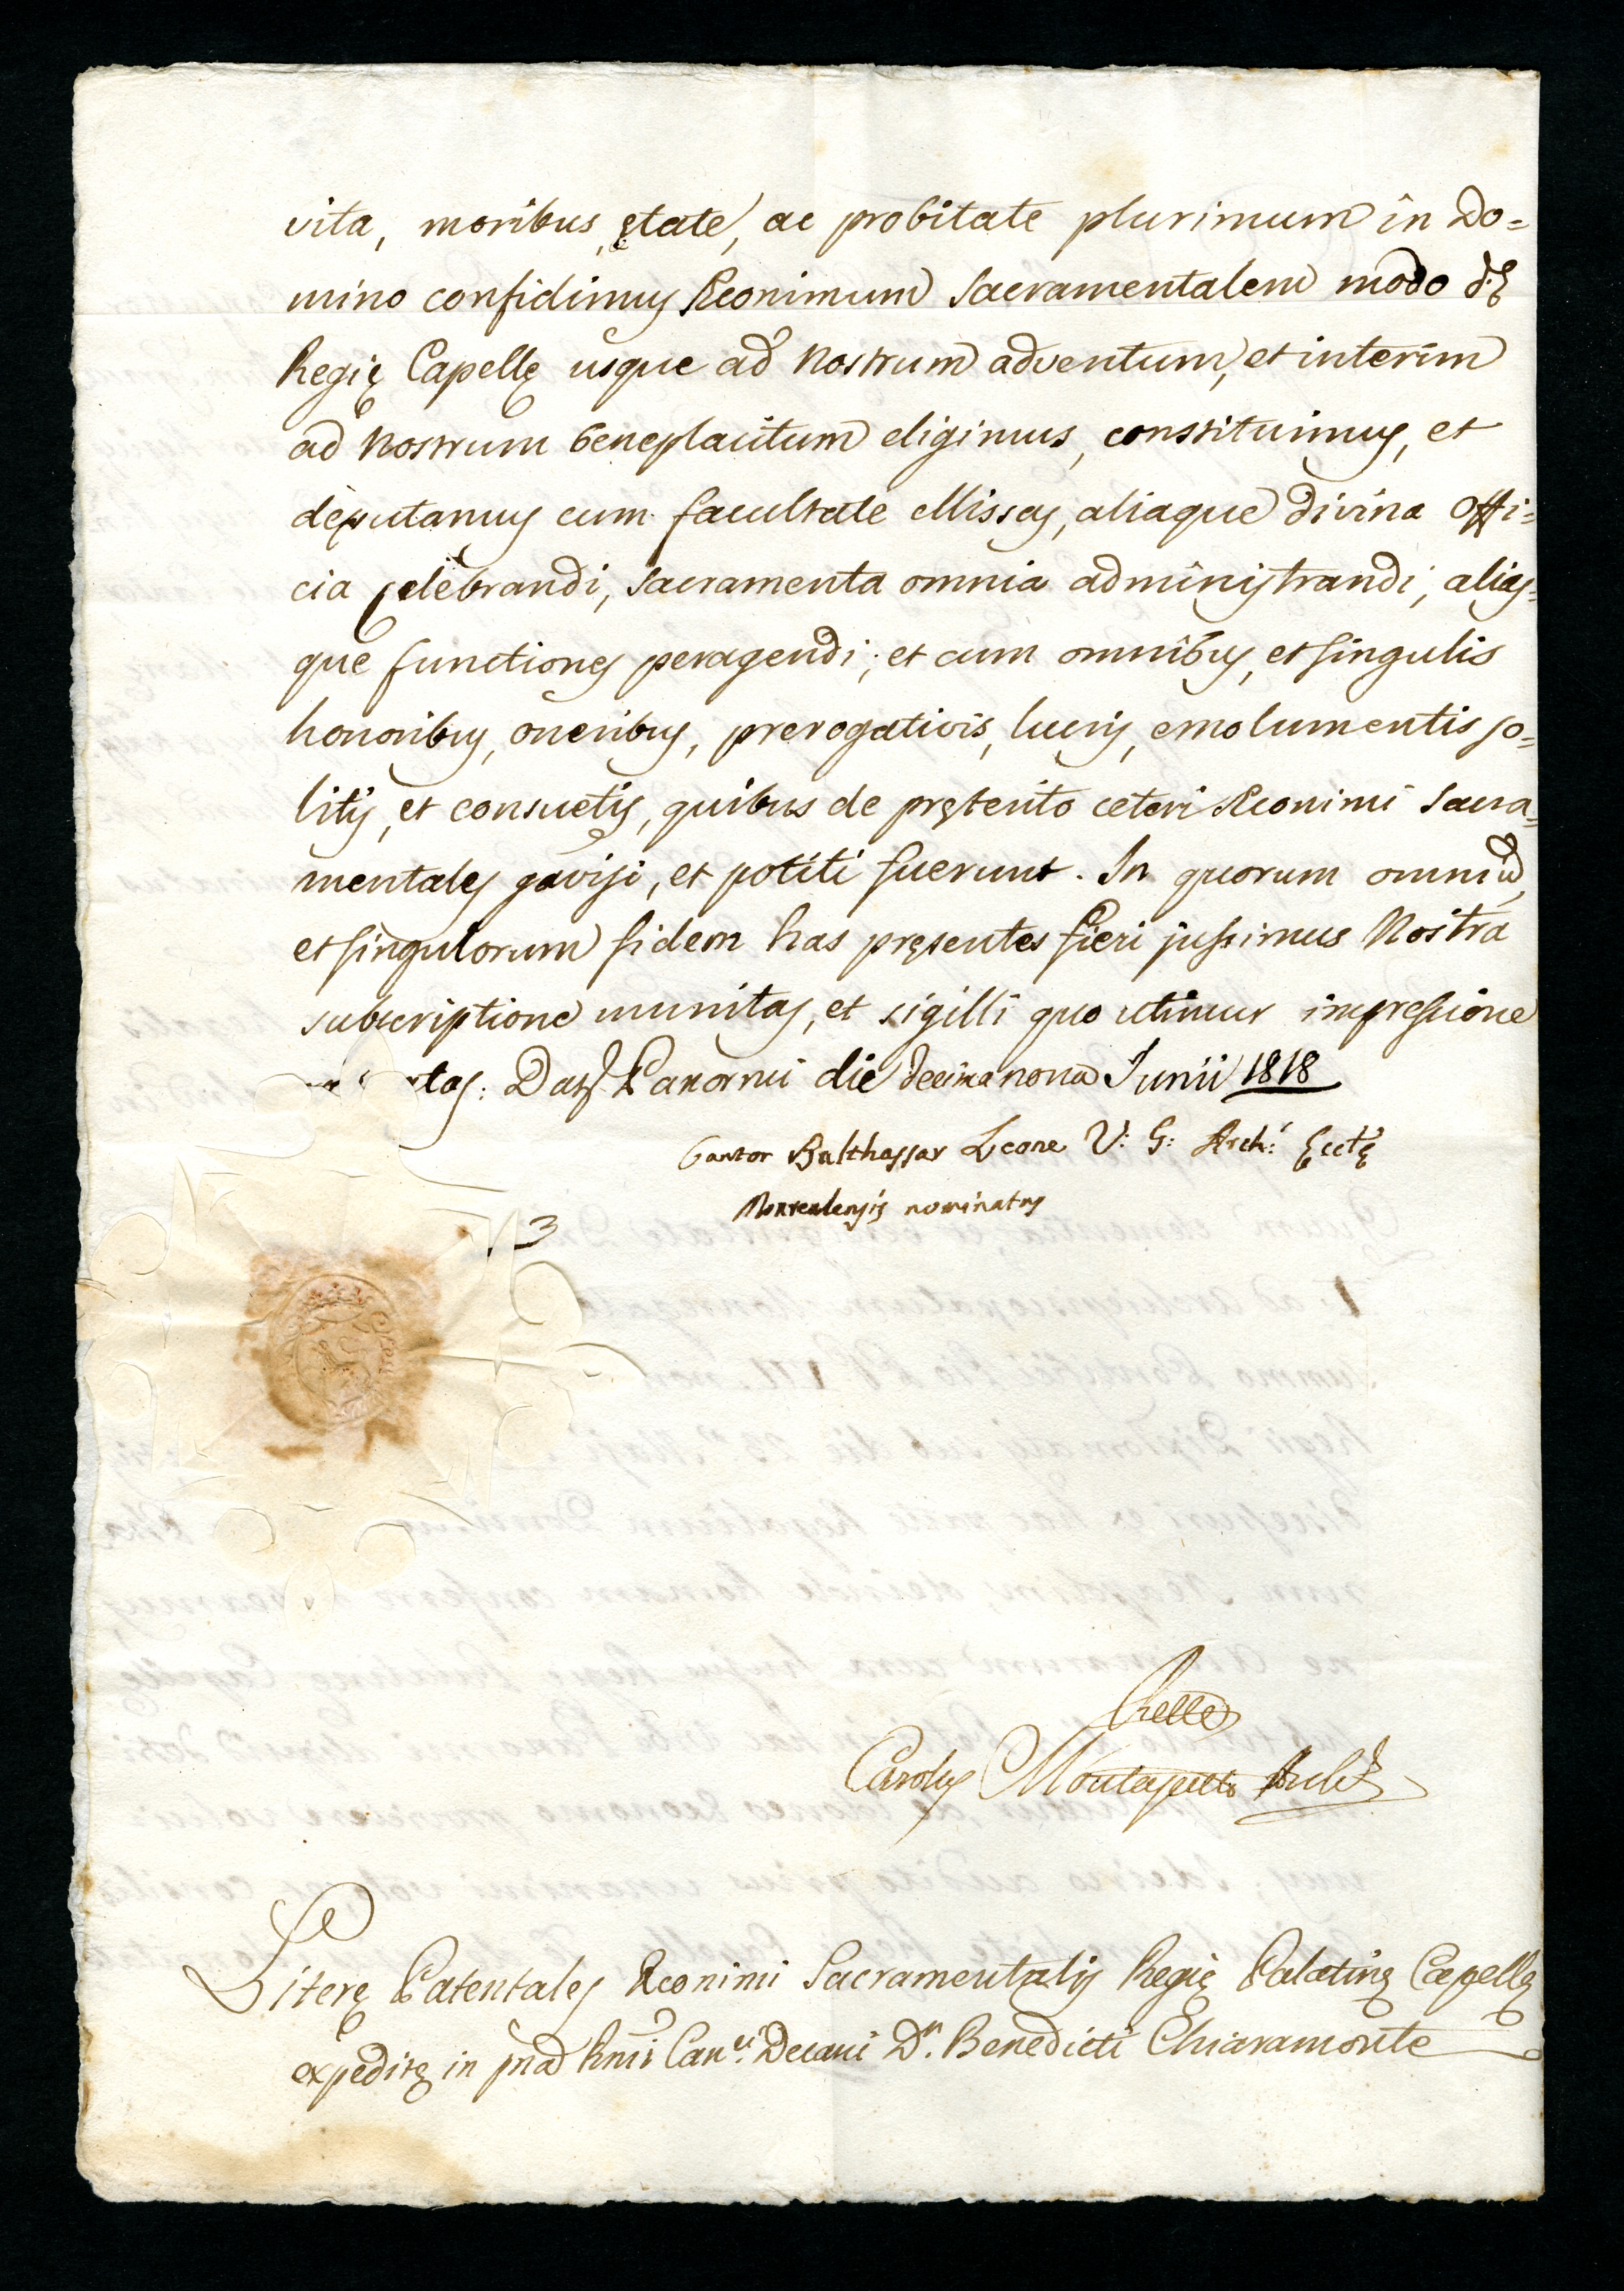 vita, moribus, ętate, ac probitate plurimum in Do=
mino confidimus Reonimum Sacramentalem modo dę
Regię Capellę usque ad Nostrum adventum, et interim
ad Nostrum beneplacitum eligimus, constituimus, et
deputamus cum facultate Missas, aliaque divina Offi=
cia celebrandi, Sacramenta omnia administrandi, alias=
que functiones peragendi; et cum omnibus, et singulis
honoribus, oneribus, prerogativis, lucris, emolumentis so=
litis, et consuetis, quibus de pręterito ceteri Reonimi Sacra=
mentales gavisi, et potiti fuerunt. In quorum omniu,
et singulorum fidem has pręsentes fieri jussimus Nostra
subscriptione munitas, et sigilli quo utimur impressione
tas: Dat Panormi die decimanona Junii 1818
Cantor Balthassar Leone V: G: Arch: Ecclę
Montealensis nominatus
3
Carolus
Literę Patentales Reonimi Sacramentalis Regię Palatinę Capellę
expeditę in Rmi Can.ci Decani Dn. Benedicti Chiaramonte